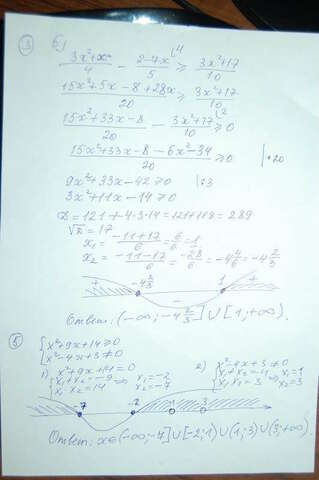 ③ б)
(3x²+x)/4 - (2-7x)/5 ⩾ (3x²+17)/10
(15x²+5x-8+28x)/20 ⩾ (3x²+17)/10
(15x²+33x-8)/20 - (3x²+17)/10 ⩾0
(15x²+33x-8-6x²-34)/20 ⩾0 |·20
9x²+33x-42⩾0 |:3
3x²+11x-14⩾0
D=121+4·3·14=121+168=289
√D=17
x₁=(-11+17)/6=6/6=1
x₂=(-11-17)/6=-28/6=-4 4/6=-4 2/3
+ -4 2/3 - 1 +
Ответ: (-∞;-4 2/3]∪[1;+∞).
⑤ {x²+9x+14⩾0
{x²-4x+3≠0
1) x²+9x+14=0 2) x²-4x+3≠0
{x₁+x₂=-9 ⇒ x₁=-2 {x₁+x₂=4 ⇒ x₁=1
{x₁·x₂=14 x₂=-7 {x₁·x₂=3 x₂=3
-7 -2 1 3
Ответ: x∈(-∞;-7]∪[-2;1)∪(1;3)∪(3;+∞).